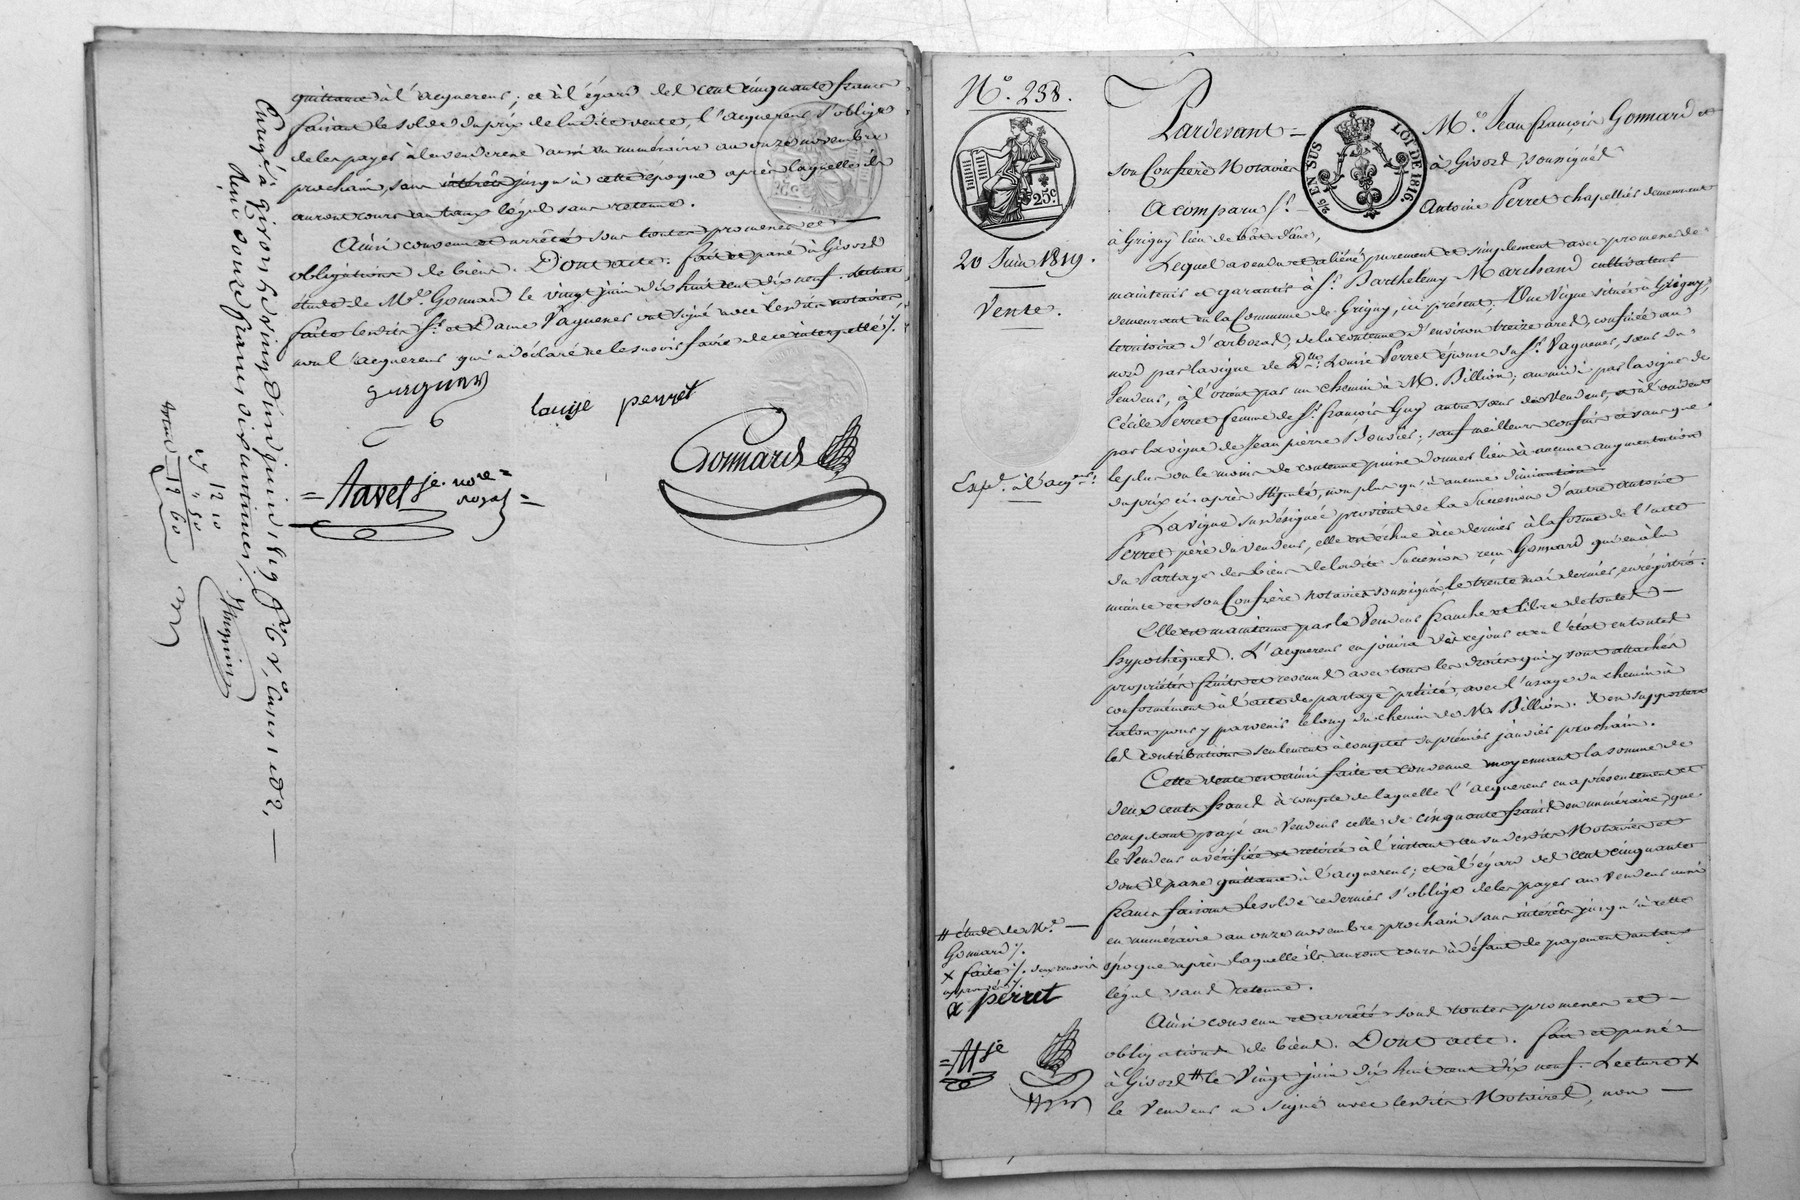 quittance à l'acquereur; et à l'égard des cent cinquante francs
faisant le solde du prix de ladite vente, l'acquereur s'oblige
de les payer à la venderesse aussi en numéraire au onze novembre
prochain, sans intérêts jusqu'à cette époque après laquelle ils
auront cours au taux légal sans retenue.
Ainsi convenu et arrêté sous toutes promesses et
obligations de biens. Dont acte. fait et passé à Givors
étude de Me. Gonnard le vingt juin dix huit cent dix neuf. Lecture
faite lesdits Sr. et Dame Vaguener ont signé avec lesdits notaires
non l'acquereur qui a déclaré ne le savoir faire de ce interpellé ./.
louise perret
Gonnard
= Navel je. nore =
royal =
Enregé. à Givors le vingt deux juin 1819 fo. 6 Vo.
12 10
" 50
12 60
No. 238.
25c.
20 Juin 1819.
Vente.
Expé. à l'acqr.
EN SUS
LOI DE 1816.
Pardevant = Me. Jean François Gonnard et
son Confrère Notaires à Givors, soussignés
A comparu Sr. Antoine Perret chapellier demeurant
à Grigny lieu de
Lequel a vendu et aliéné purement et simplement avec promesse de
maintenir et garantir à Sr. Barthelemy Marchand cultivateur
demeurant en la Commune de Grigny, ici présent; Une Vigne située à Grigny,
territoire d'arboras, de la contenue d'environ treize ares, confinée au
nord par la vigne de Dme. Louise Perret épouse du Sr. Vaguener, sœur du
Vendeur, à l'orient par un chemin à M. Billion; au midi par la vigne de
Cécile Perret femme de Sr. françois Guy autre sœur du Vendeur, et à l'occident
par la vigne de Jean pierre Bouvier; sauf meilleurs confins et sans que
le plus ou le moins de contenue puisse donner lieu à aucune augmentation
du prix ci-après stipulé, non plus qu'à aucune diminution
La vigne susdésignée provient de la Succession d'autre Antoine
Perret père du vendeur, elle est échue à ce dernier à la forme de l'acte
du Partage des biens de ladite Succession reçu Gonnard qui en a la
minute et son Confrère notaires soussignés, le trente mai dernier, enrégistré.
Elle est maintenue par le Vendeur franche et libre de toutes
hypothèques. L'acquereur en jouira dès ce jour et en l'état en toutes
propriétés fruits et revenus avec tous les droits qui y sont attachés
conformément à l'acte de partage précité, avec l'usage du chemin à
talon pour y parvenir le long du chemin de M. Billion. il en supportera
les contributions seulement à compter du premier janvier prochain.
Cette vente est ainsi faite et convenue moyennant la somme de
deux cents francs à compte de laquelle l'acquereur en a présentement et
comptant payé au Vendeur celle de cinquante francs en numéraire, que
le Vendeur a vérifiée et retirée à l'instant en vu desdits Notaires et
dont il passe quittance à l'acquereur; et à l'égard des cent cinquante
francs faisant le solde ce dernier s'oblige de les payer au Vendeur aussi
en numéraire au onze novembre prochain sans intérêts jusqu'à cette
époque après laquelle ils auront cours à défaut de payement au taux
légal sans retenue.
Ainsi convenu et arrêté sous toutes promesses et
obligations de biens. Dont acte. fait et passé
à Givors # le Vingt juin dix huit cent dix neuf. Lecture X
le Vendeur a signé avec lesdits Notaires, non
# étude de Me.
Gonnard ./.
X faite ./. deux renvois
approuvés ./.
a perret